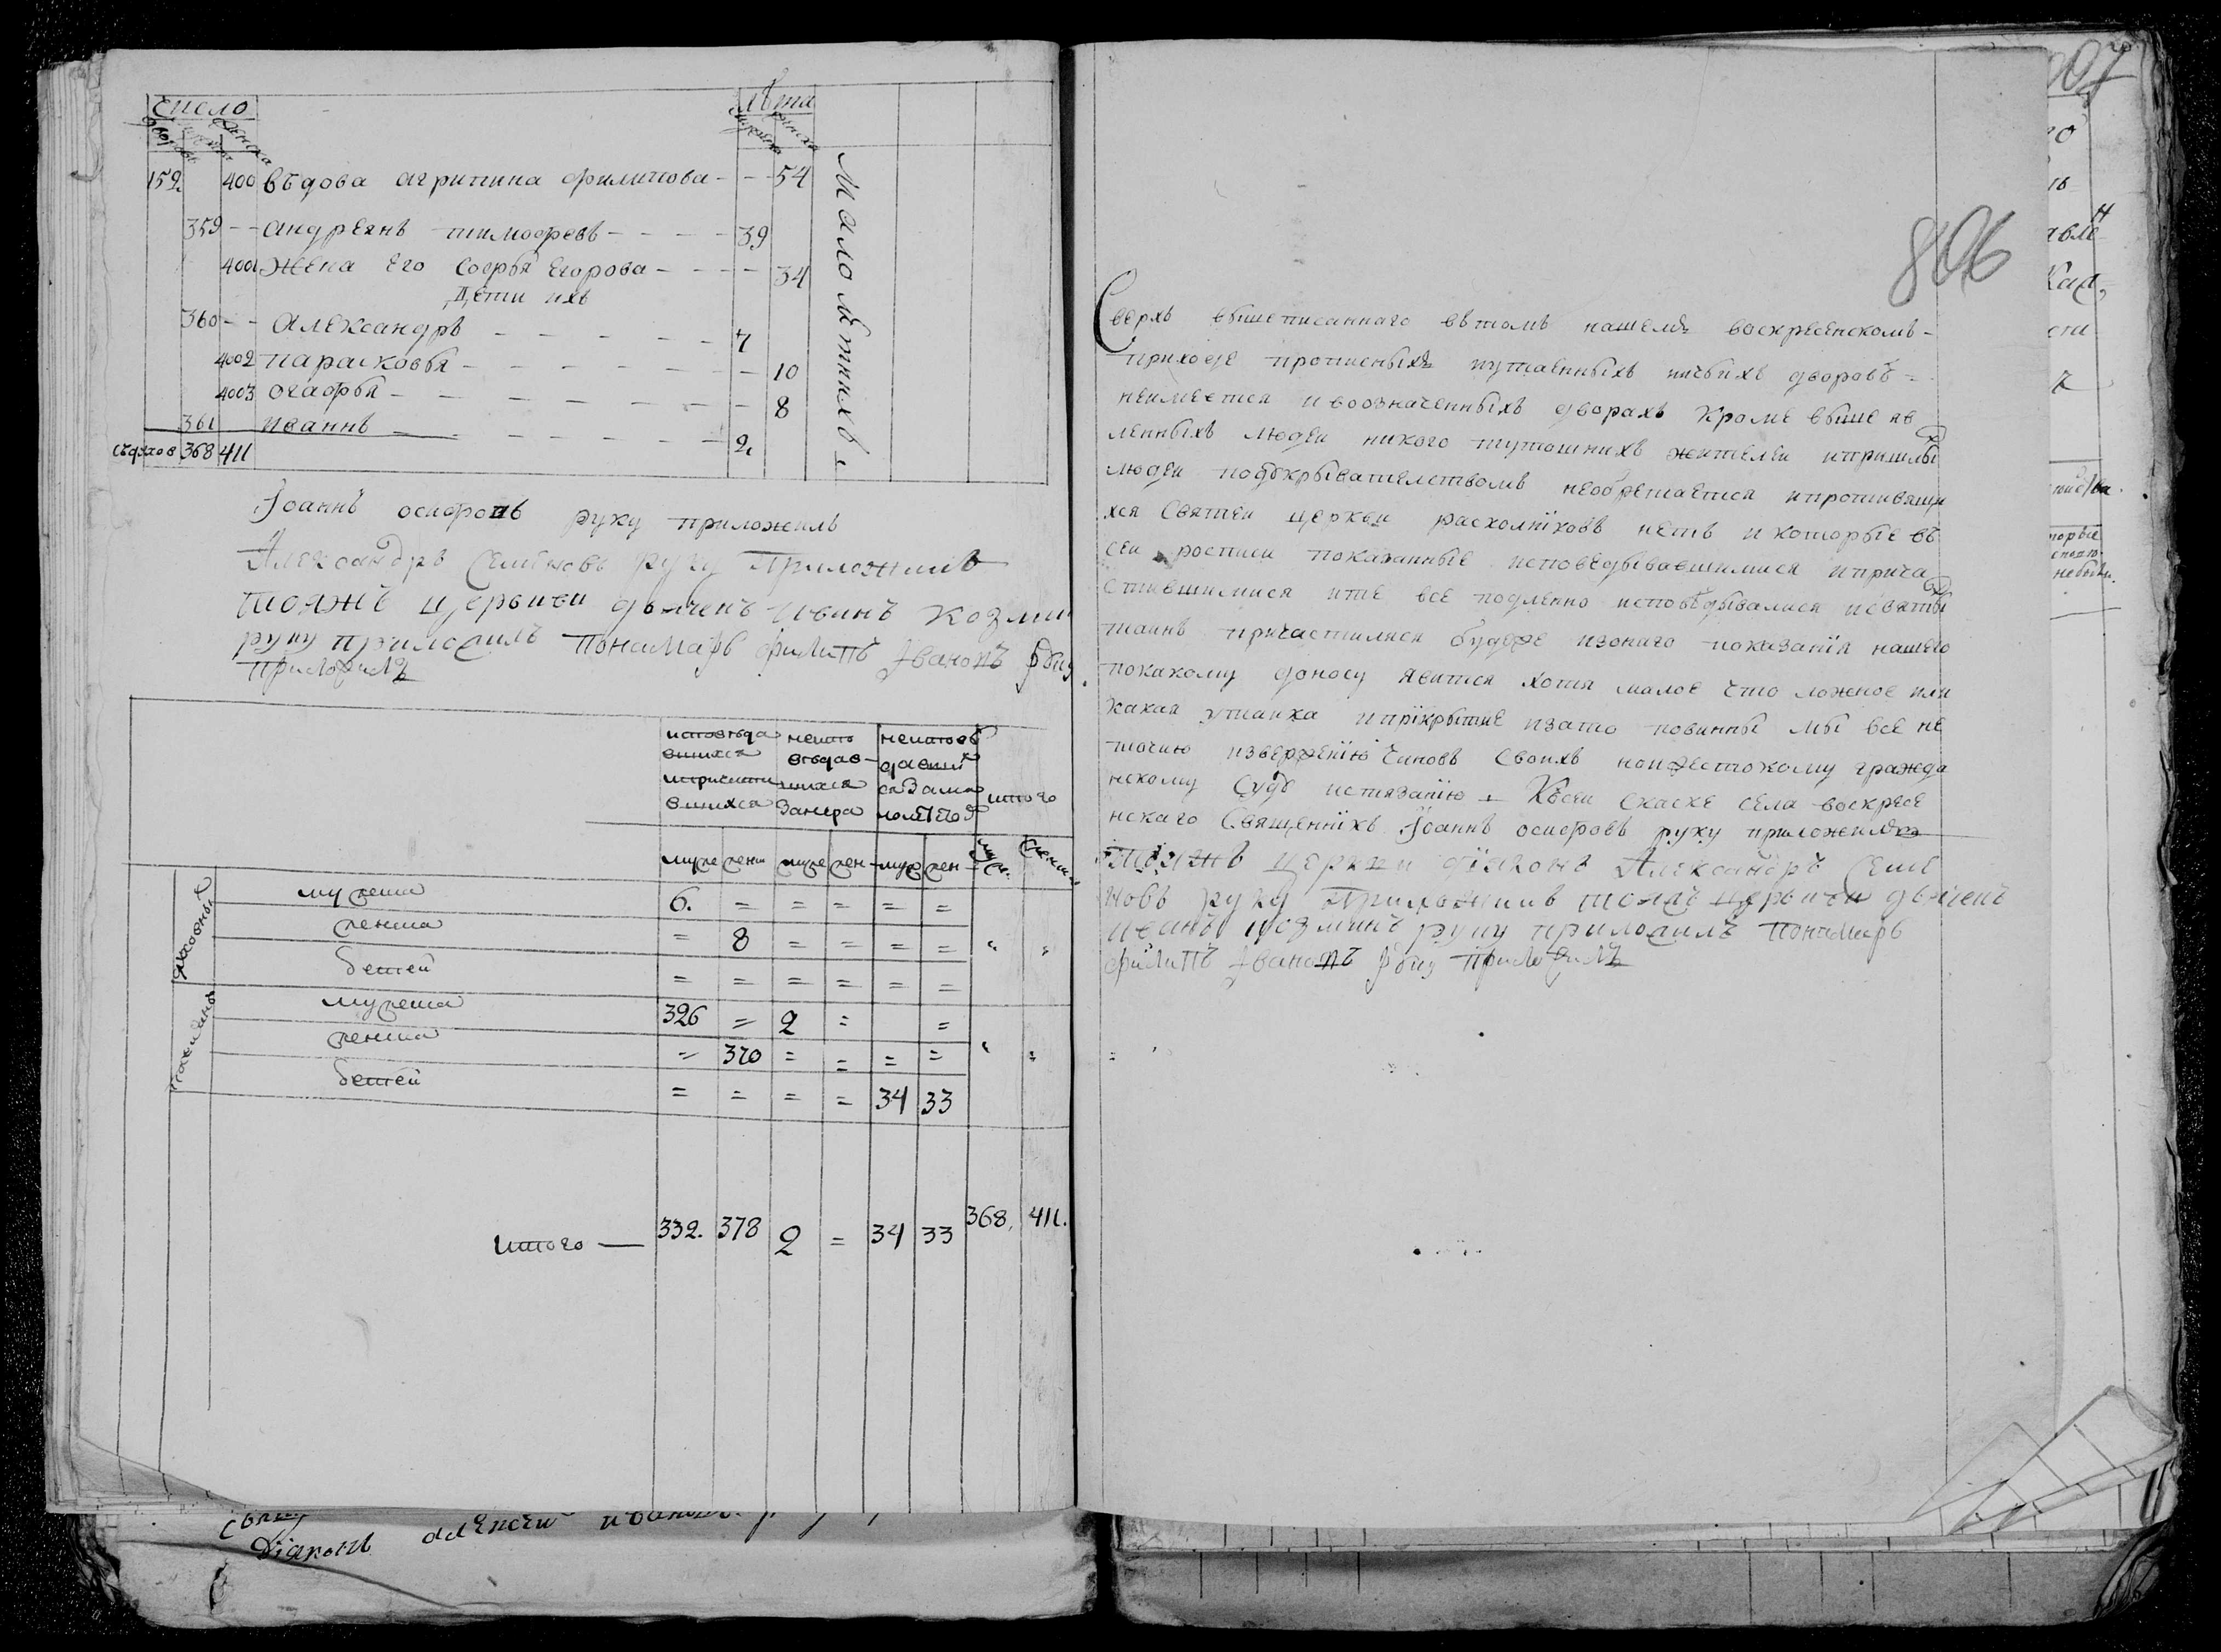 Число
Лѣта
мужеска
женска
152 400 вѣдова агрипина филипова - - 54
359 - - андреянъ тимофеевъ - - - - 39
4001 жена его Софья Егорова - - - - 34
Дети ихъ
360 - - Александръ - - - - - - 7
4002 парасковья - - - - - - - 10
4003 огафья - - - - - - - 8
361 иваннъ - - - - - - 2
368 411
Малолѣтнихъ
Иоаннъ осифовъ руку приложилъ
Александръ Семеновъ руку приложилъ
тояжъ церькви дьячекъ иванъ козмин
руку приложилъ понамарь филиппъ Ивановъ руку
приложилъ
исповѣда
вшихся
ипричасти
вшихся
неиспо
вѣдав-
шихся
неисповѣ
давших
итого
муже женн муже жен муж жен
духовные
мужеска 6. = = = = =
женска = 8 = = = =
детей = = = = = =
мужеска 326 = 2 = =
женска = 370 = = = =
детей = = = = 34 33
итого — 332. 378 2 = 34 33 368. 411.
806
Сверхъ вышеписаннаго втомъ нашемъ воскресенскомъ -
приходе прописныхъ иутаенныхъ ничьихъ дворовъ =
неимеется ивоозначенныхъ дворахъ кроме выше яв
ленныхъ людеи никого тутошнихъ жителеи ипришлых
людеи подъкрывателствомъ необретается ипротивящи
хся Святеи церкви расколнiковъ нетъ и которые въ
сеи росписи показанные исповедывавшимися иприча
стившимися ите все подленно исповѣдывалися исвятых
таинъ причастилися буд же изонаго показанiя нашего
покакому доносу явится хотя малое что ложное или
какая утаика ипрiкрытие изато повинны мы все не
точию извержению чиновъ своихъ ноижестокому гражда
нскому суду истязанiю - Ксеи скаске села воскресе
нскаго Священнiкъ Иоаннъ осифовъ руку приложилъ
тояжъ церкви дiаконъ Александръ Семе
новъ руку приложилъ тояжъ церькви дьячекъ
иванъ козминъ руку приложилъ понамарь
филиппъ Ивановъ руку приложилъ
007
Дiаконъ алексеи иванов